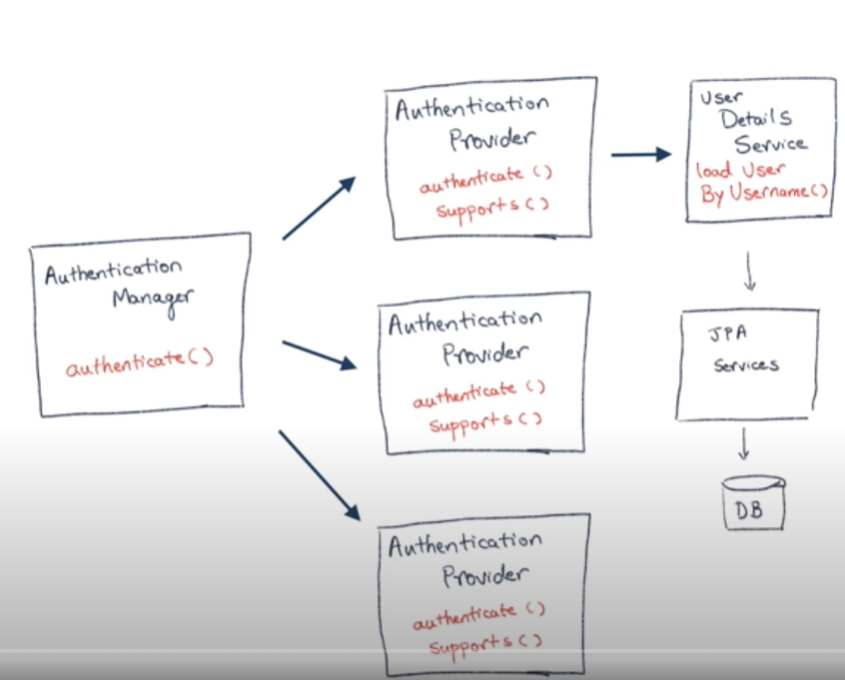 Authentication
Manager
authenticate()
Authentication
Provider
authenticate ()
supports()
User
Details
Service
load User
By Username()
Authentication
Provider
authenticate ()
supports()
JPA
Services
DB
Authentication
Provider
authenticate ()
supports()